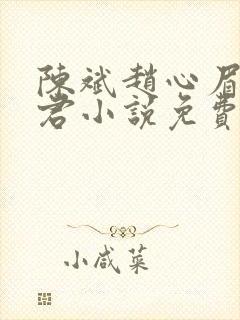 陳斌趙心眉
君小說免費
小咸菜